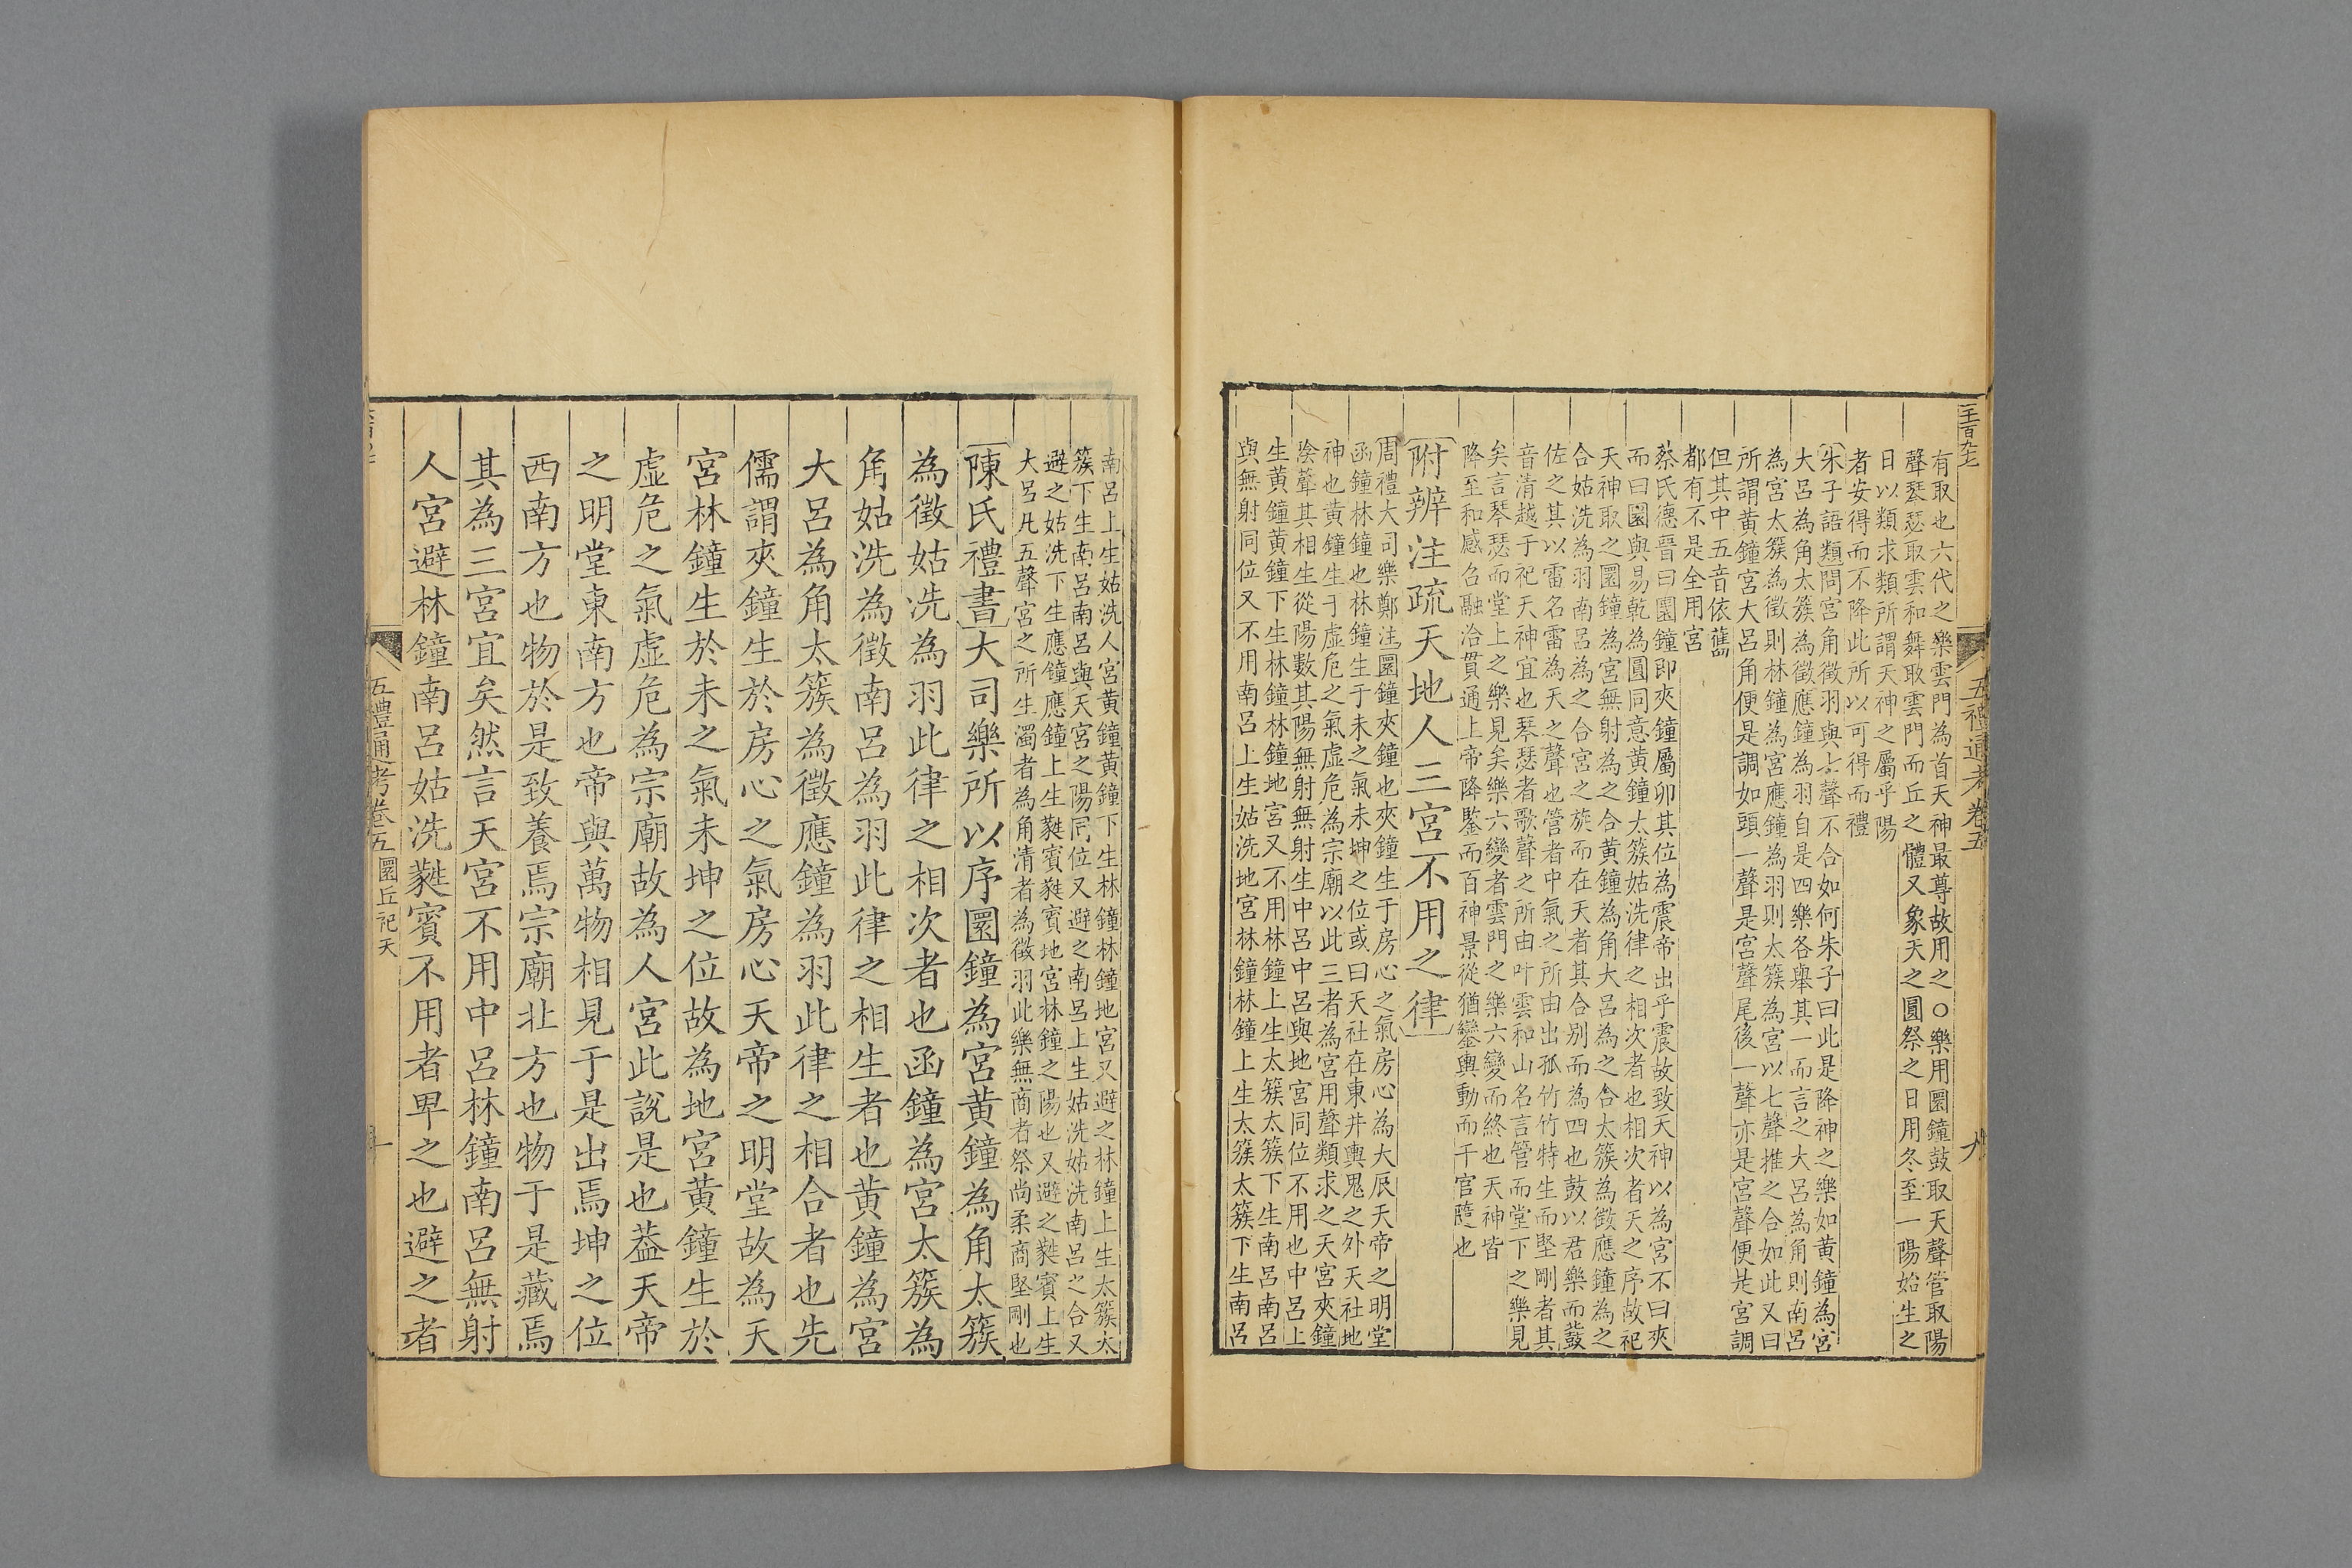 五禮通考卷五
九
有取也六代之樂雲門為首天神最尊故用之○樂用圜鐘鼓取天聲管取陽
聲琴瑟取雲和舞取雲門而丘之體又象天之圓祭之日用冬至一陽始生之
日以類求類所謂天神之屬乎陽
者安得而不降此所以可得而禮
朱子語類問宮角徵羽與七聲不合如何朱子曰此是降神之樂如黃鐘為宮
大呂為角太簇為徵應鐘為羽自是四樂各舉其一而言之大呂為角則南呂
為宮太簇為徵則林鐘為宮應鐘為羽則太簇為宮以七聲推之合如此又曰
所謂黃鐘宮大呂角便是調如頭一聲是宮聲尾後一聲亦是宮聲便是宮調
但其中五音依舊
都有不是全用宮
蔡氏德晉曰圜鐘即夾鐘屬卯其位為震帝出乎震故致天神以為宮不曰夾
而曰圜與易乾為圓同意黃鐘太簇姑洗律之相次者也相次者天之序故祀
天神取之圜鐘為宮無射為之合黃鐘為角大呂為之合太簇為徵應鐘為之
合姑洗為羽南呂為之合宮之旋而在天者其合別而為四也鼓以君樂而鼗
佐之其以雷名雷為天之聲也管者中氣之所由出孤竹竹特生而堅剛者其
音清越于祀天神宜也琴瑟者歌聲之所由叶雲和山名言管而堂下之樂見
矣言琴瑟而堂上之樂見矣樂六變者雲門之樂六變而終也天神皆
降至和感召融洽貫通上帝降鑒而百神景從猶鑾輿動而千官隨也
附辨注疏天地人三宮不用之律
周禮大司樂鄭注圜鐘夾鐘也夾鐘生于房心之氣房心為大辰天帝之明堂
函鐘林鐘也林鐘生于未之氣未坤之位或曰天社在東井輿鬼之外天社地
神也黃鐘生于虛危之氣虛危為宗廟以此三者為宮用聲類求之天宮夾鐘
陰聲其相生從陽數其陽無射無射生中呂中呂與地宮同位不用也中呂上
生黃鐘黃鐘下生林鐘林鐘地宮又不用林鐘上生太簇太簇下生南呂南呂
與無射同位又不用南呂上生姑洗地宮林鐘林鐘上生太簇太簇下生南呂
南呂上生姑洗人宮黃鐘黃鐘下生林鐘林鐘地宮又避之林鐘上生太簇太
簇下生南呂南呂與天宮之陽同位又避之南呂上生姑洗姑洗南呂之合又
避之姑洗下生應鐘應鐘上生蕤賓蕤賓地宮林鐘之陽也又避之蕤賓上生
大呂凡五聲宮之所生濁者為角清者為徵羽此樂無商者祭尚柔商堅剛也
陳氏禮書大司樂所以序圜鐘為宮黃鐘為角太簇
為徵姑洗為羽此律之相次者也函鐘為宮太簇為
角姑洗為徵南呂為羽此律之相生者也黃鐘為宮
大呂為角太簇為徵應鐘為羽此律之相合者也先
儒謂夾鐘生於房心之氣房心天帝之明堂故為天
宮林鐘生於未之氣未坤之位故為地宮黃鐘生於
虛危之氣虛危為宗廟故為人宮此說是也葢天帝
之明堂東南方也帝與萬物相見于是出焉坤之位
西南方也物於是致養焉宗廟北方也物于是藏焉
其為三宮宜矣然言天宮不用中呂林鐘南呂無射
人宮避林鐘南呂姑洗蕤賓不用者卑之也避之者
五禮通考卷五圜丘祀天